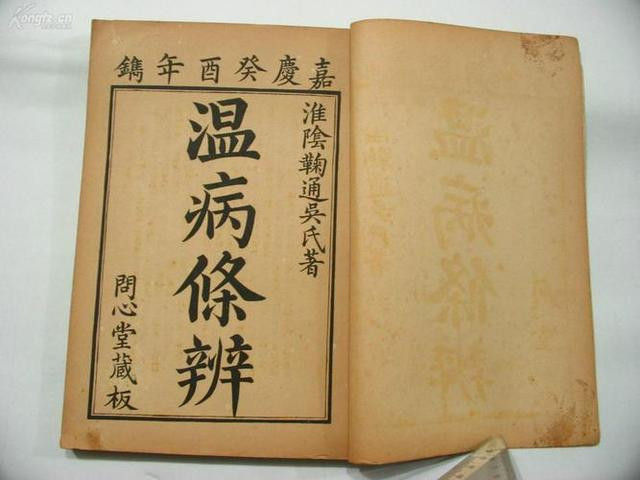 嘉慶癸酉年鐫
淮陰鞠通吳氏著
温病條辨
問心堂藏板
Kongfz.cn